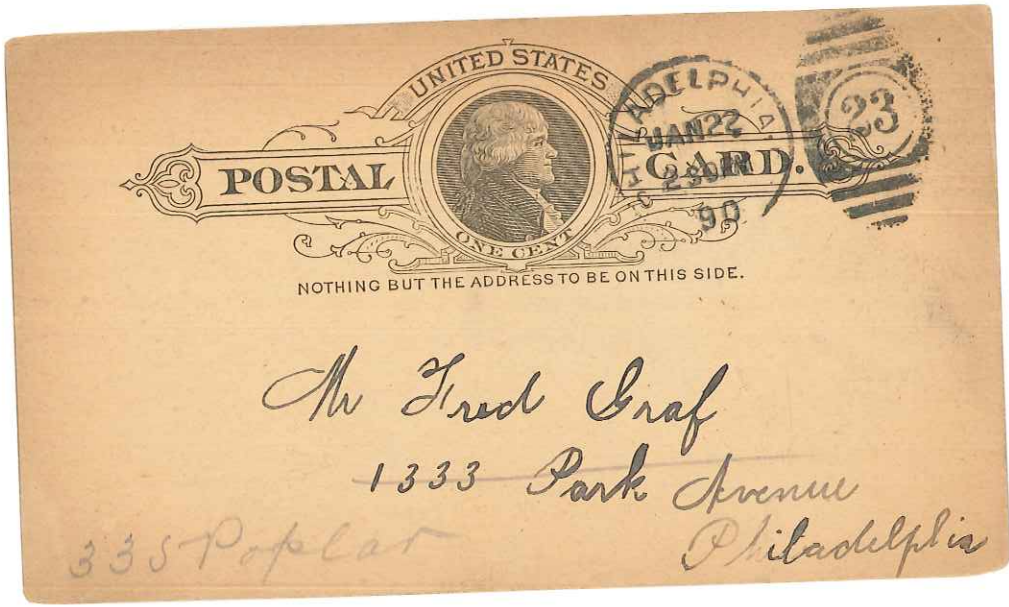 UNITED STATES
POSTAL CARD.
ONE CENT
PHILADELPHIA.
JAN 22
2 30 PM
90
23
NOTHING BUT THE ADDRESS TO BE ON THIS SIDE.
Mr Fred Graf
1333 Park Avenue
Philadelphia
335 Poplar